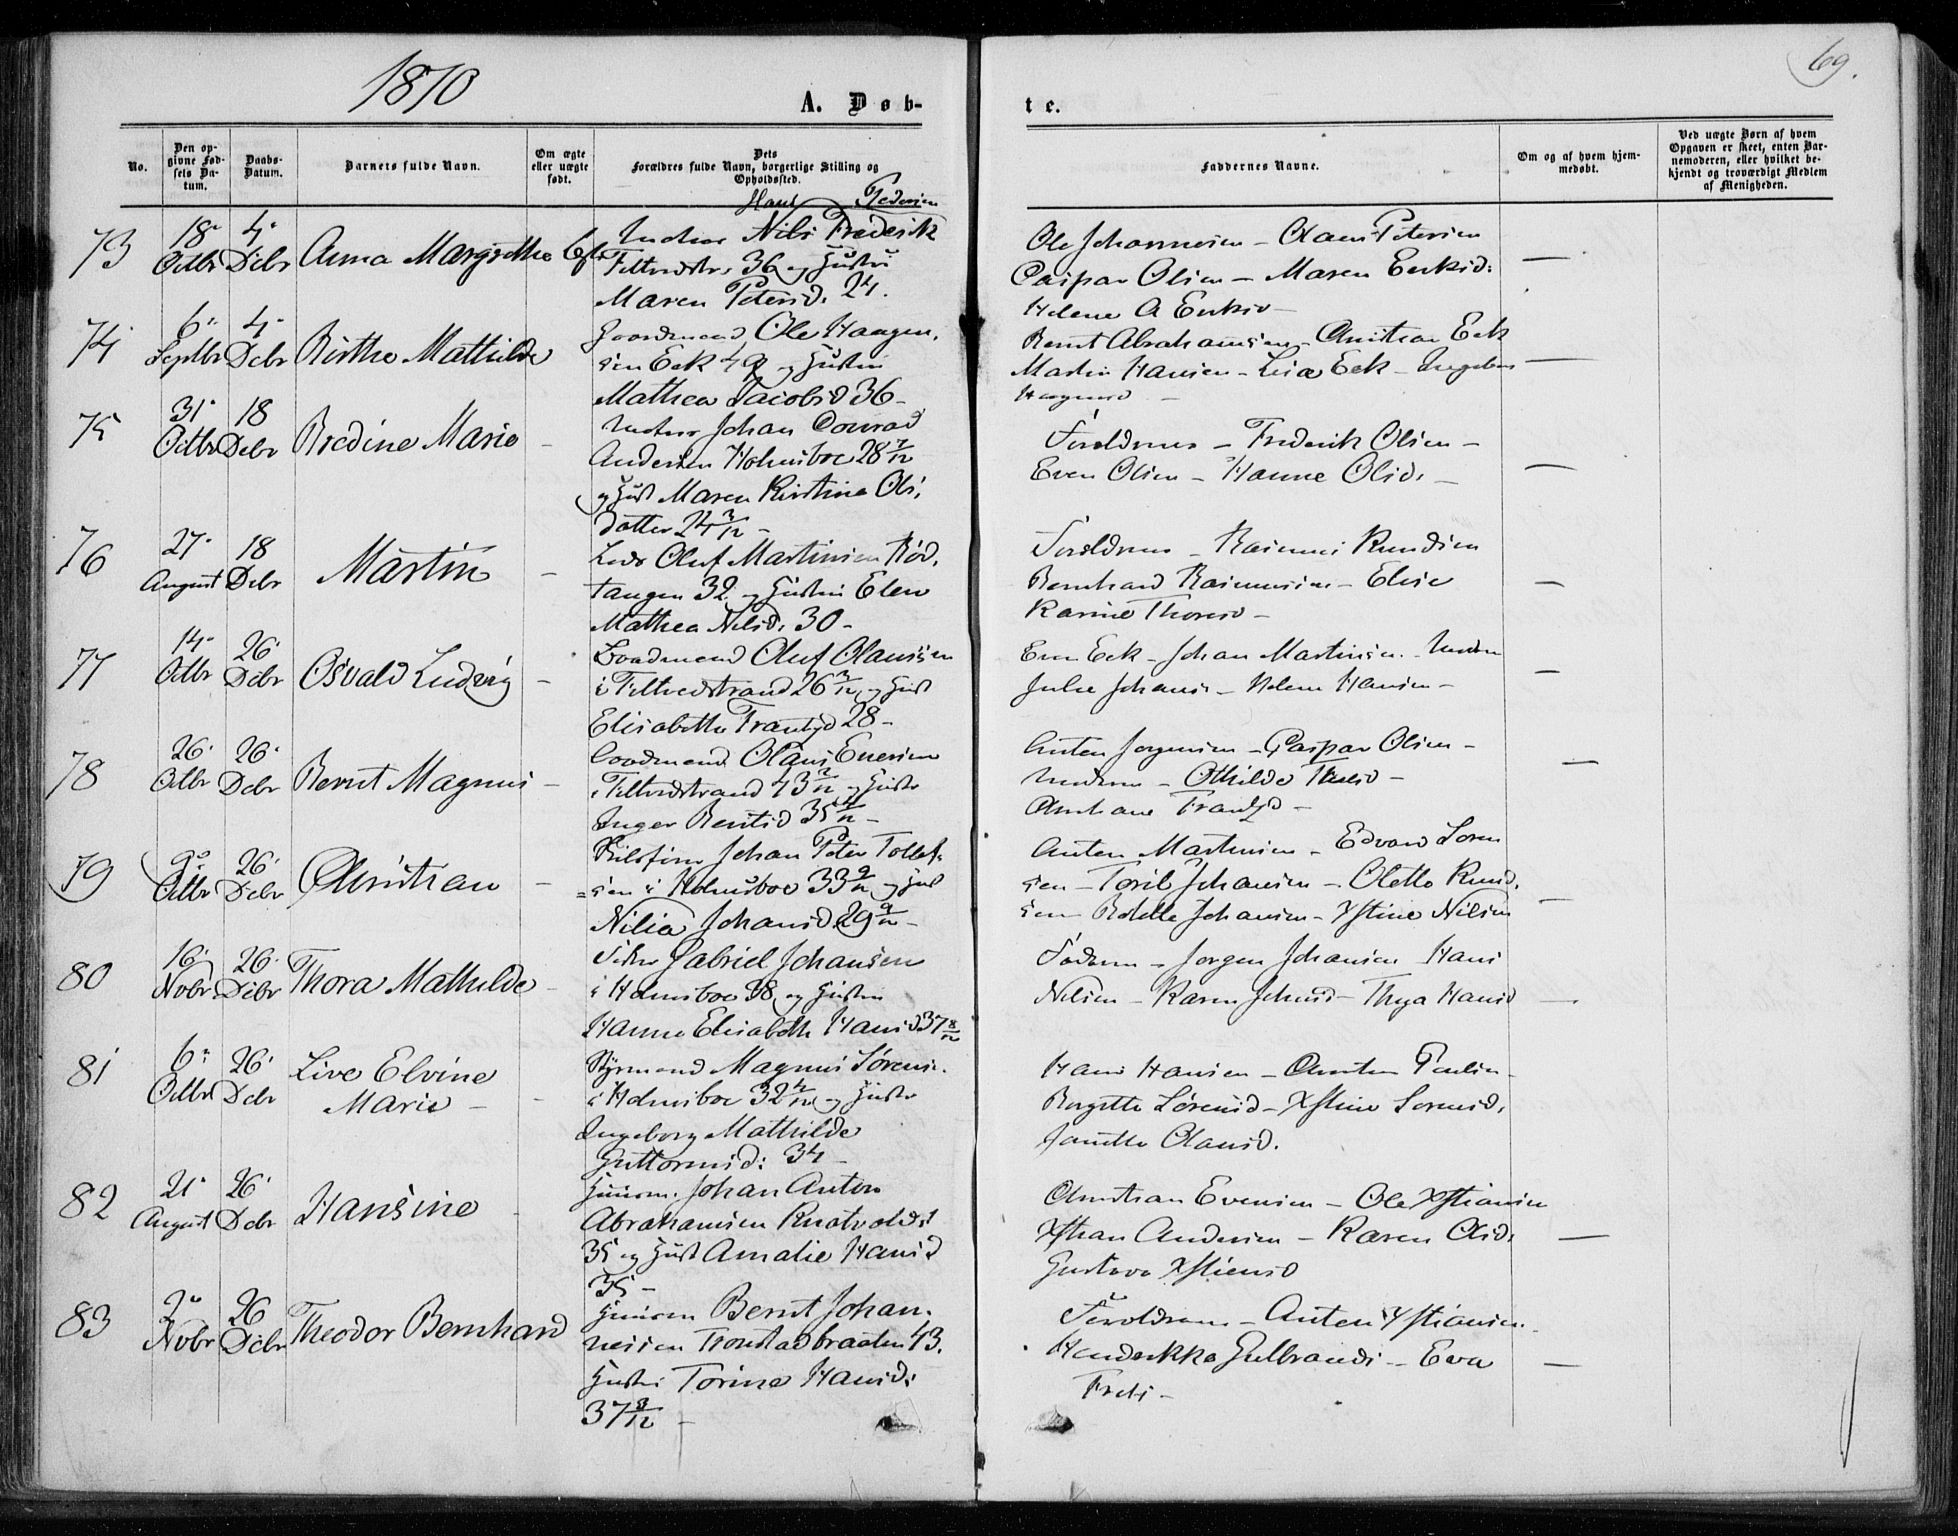 1870
69.
A. Døb-
te.
No.
Den op-
givne Fød-
sels Da-
tum.
Daabs-
Datum.
Barnets fulde Navn.
Om ægte
eller uægte
født.
Dets
Forældres fulde Navn, borgerlige Stilling og
Opholdssted.
Faddernes Navne.
Om og af hvem hjem-
medøbt.
Ved uægte Børn af hvem
Opgaven er skeet, enten Bar-
nemoderen, eller hvilket be-
kjendt og troværdigt Medlem
af Menigheden.
73
18 4
Octbr Dcbr Anna Margrethe
Hans Pedersen
Nils Frederik
36 og Hustru
Maren Petersd. 24.
Ole Johannesen - Olaus Petersen
Caspar Olsen - Maren Eriksd:
Helene A
—
74
6 4
Septbr Dcbr Birthe Mathilde
Gaardmand Ole Haagen,
sen Eek og Hustru
Mathea Jacobsd 36 -
Bernt Abrahamsen - Christian Eek
Martin Hansen - Lisa Eek -
—
75
31 18
Octbr Dcbr Bredine Marie -
Johan Conrad
Andersen Holmsboe 28 7/12
og Hust Maren Kirstine Ols,
datter 24 3/12 -
Forældrene - Frederik Olsen -
Even Olsen - Hanne Olsd. -
—
76
27 18
August Dcbr Martin -
Lods Oluf Martinsen Rød,
tangen 32 og Hustru Elen
Mathea Nilsd. 30 -
Forældrene - Rasmus Knudsen
Bernhard Rasmussen - Elise
Karine Thoresd -
—
77
14 26
Octbr Dcbr Osvald Ludvig -
Baadmand Oluf Olaussen
i Tiltvedstrand 26 3/12 og Hust
Elisabeth Frantzd 28 -
Even Eek - Johan Martinsen -
Julie Johans - Helene Hansen -
—
78
26 26
Octbr Dcbr Bernt Magnus -
Baadmand Olaus Evensen
i Tiltvedstrand 43 og Hustr
Inger Berntsd 35 -
Anten Jørgensen - Caspar Olsen -
Othilde
Frantzd -
—
79
9 26
Octbr Dcbr Christian -
Johan Peter Tollef-
=sen i Holmsboe 33 9/12 og Hust
Nilia Johansd. 29 9/12 -
Anten Martinsen - Edvard Soren
sen - Toril Johansen - Olette Knud,
sen - Johansen - Xstine Nilsen
—
80
16 26
Novbr Dcbr Thora Mathilde -
Gabriel Johansen
i Holmsboe 38 og Hustru
Hanne Elisabeth Hansd 37 8/12
Faderen - Jørgen Johansen Hans
Nilsen - Karen Johansd - Hansd
—
81
6 26
Octbr Dcbr Live Elvine
Marie -
Styrmand Magnus Sørens.
i Holmsboe 32 4/12 og Hustr
Ingeborg Mathilde
Guttormsd: 34 -
Hans Hansen -
Sørensd - Xstine Sørensd,
Olausd.
82
21 26
August Dcbr Hansine
Huusm. Johan Anton
Abrahamsen
35 og Hust Amalie Hansd
35 -
Christian Evensen - Ole Xstiansen
Xstian Andersen - Karen Olsd.
Gustava
—
83
2 26
Novbr Dcbr Theodor Bernhard
Huusm Bernt Johan-
nessen Tronstadbraaten 43.
Hustru Torine Hansd.
37 8/12 -
Forældrene - Anten Xstiansen -
Gulbrands - Eva
—